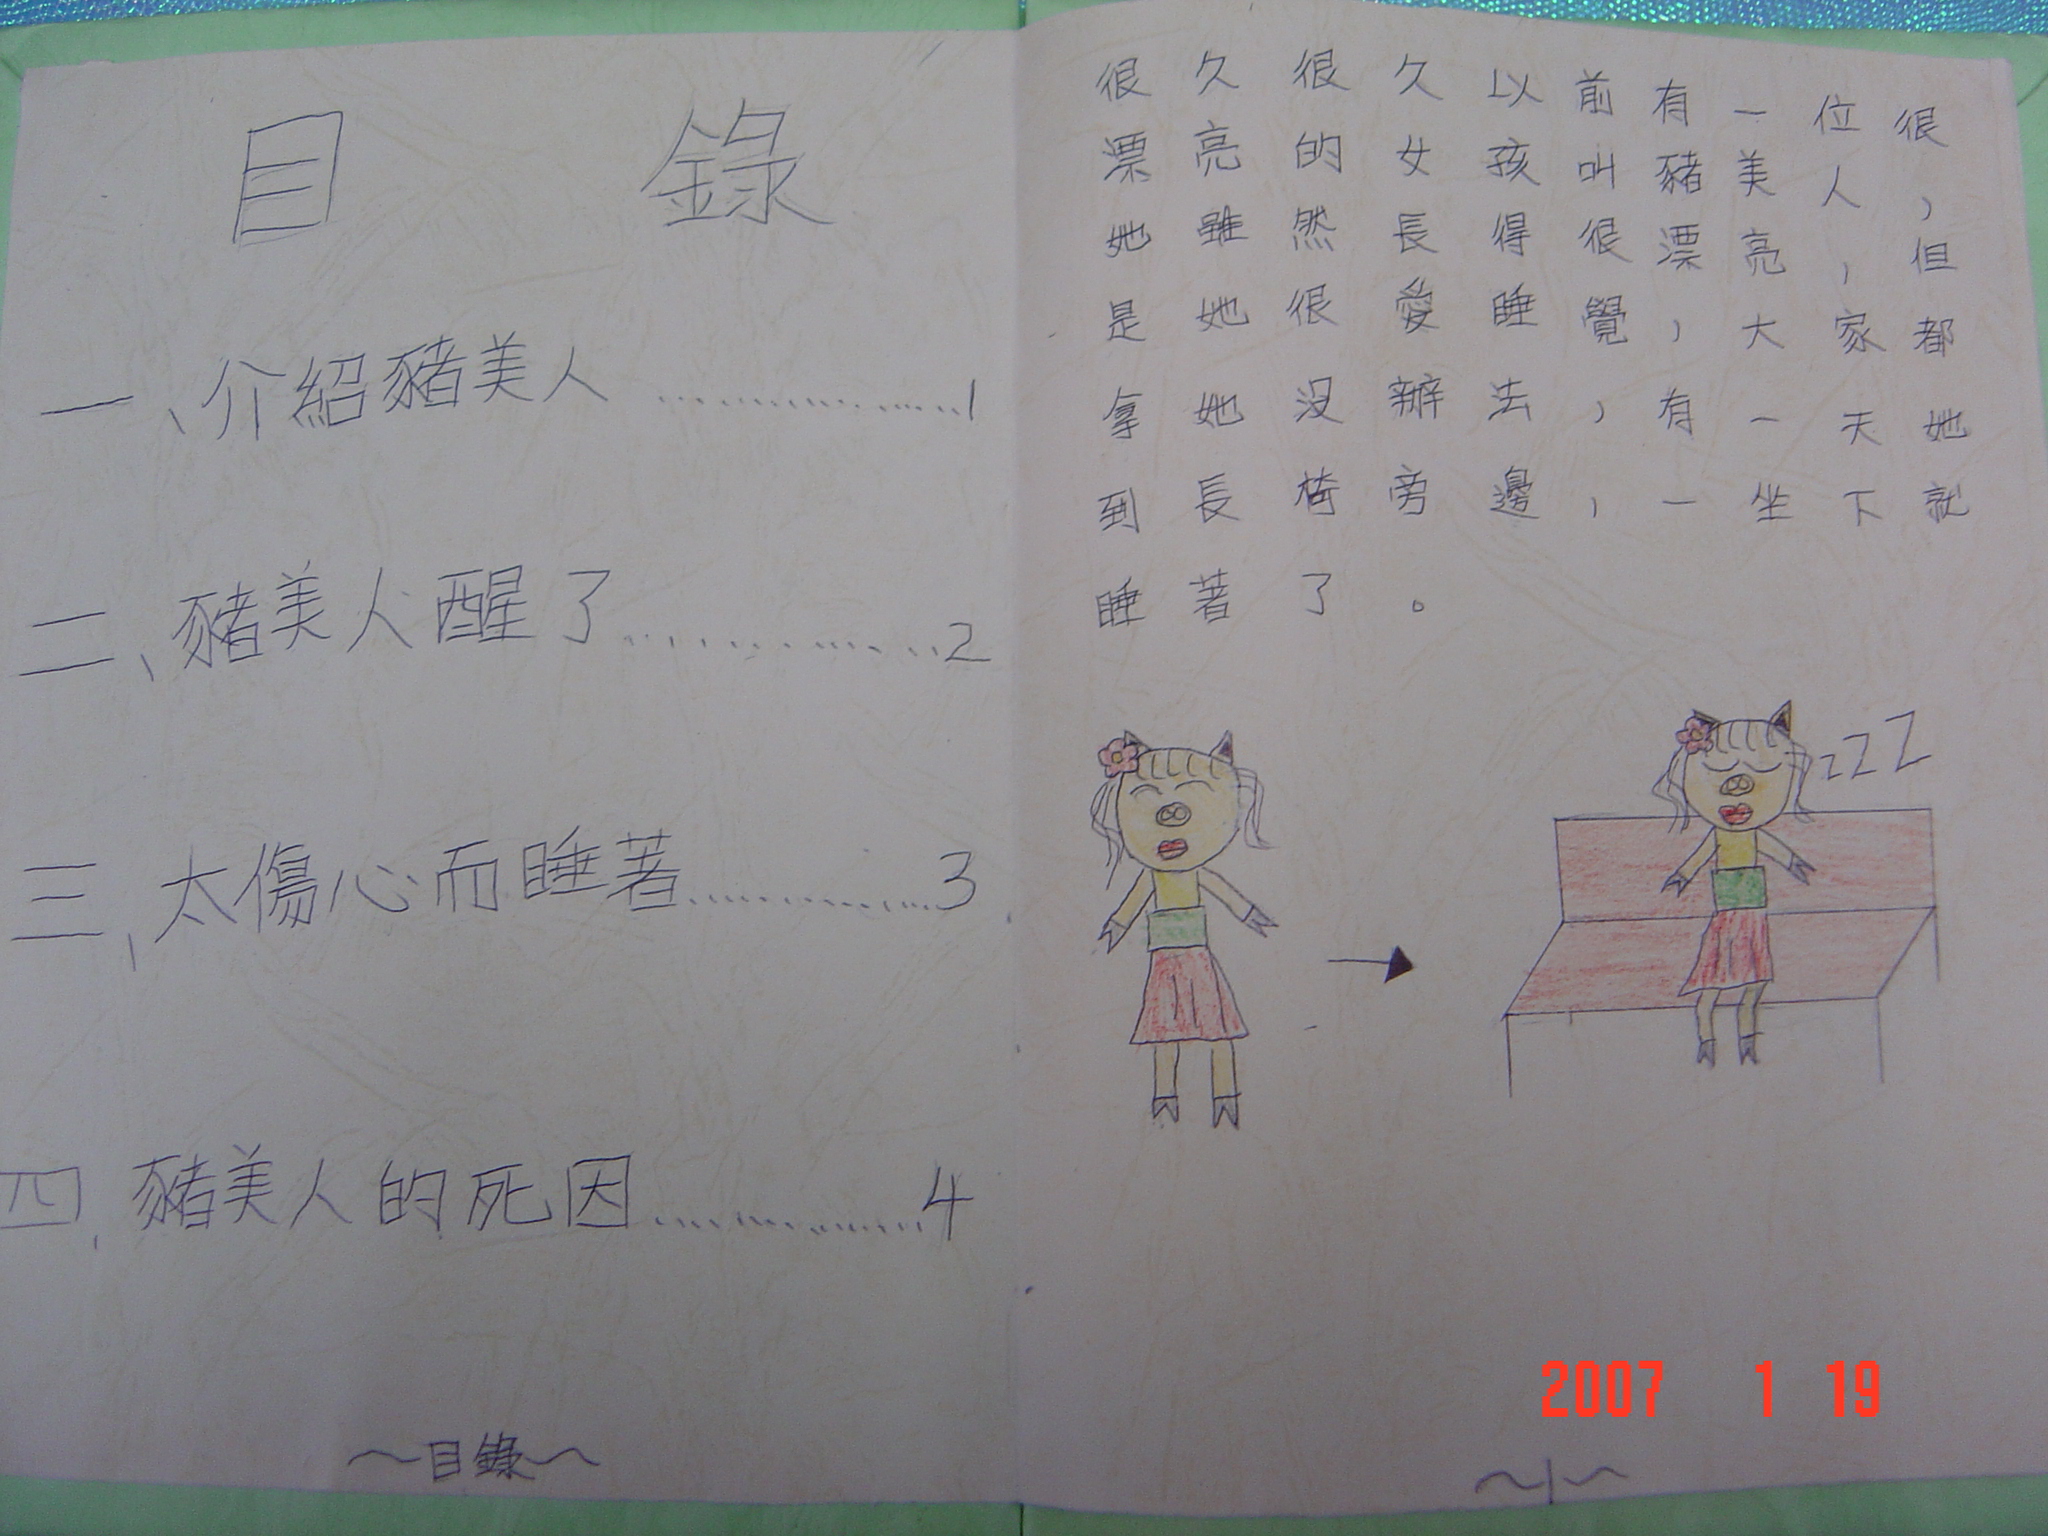 目 錄
一、介紹豬美人.................1
二、豬美人醒了.................2
三、太傷心而睡著.................3
四、豬美人的死因.................4
~目錄~
很久很久以前有一位很
漂亮的女孩叫豬美人,
她雖然長得很漂亮,但
是她很愛睡覺,大家都
拿她沒辦法,有一天她
到長椅旁邊,一坐下就
睡著了。
zZZ
2007 1 19
~1~